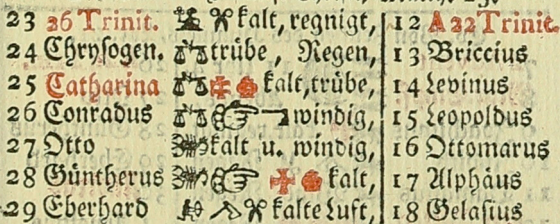 23 26 Trinit. kalt, regnigt, 12 A 22 Trinit.
24 Chrysogen. trübe, Regen, 13 Briccius
25 Catharina kalt, trübe, 14 Levinus
26 Conradus windig, 15 Leopoldus
27 Otto kalt u. windig, 16 Ottomarus
28 Güntherus kalt, 17 Alphäus
29 Eberhard kalte Luft, 18 Gelasius